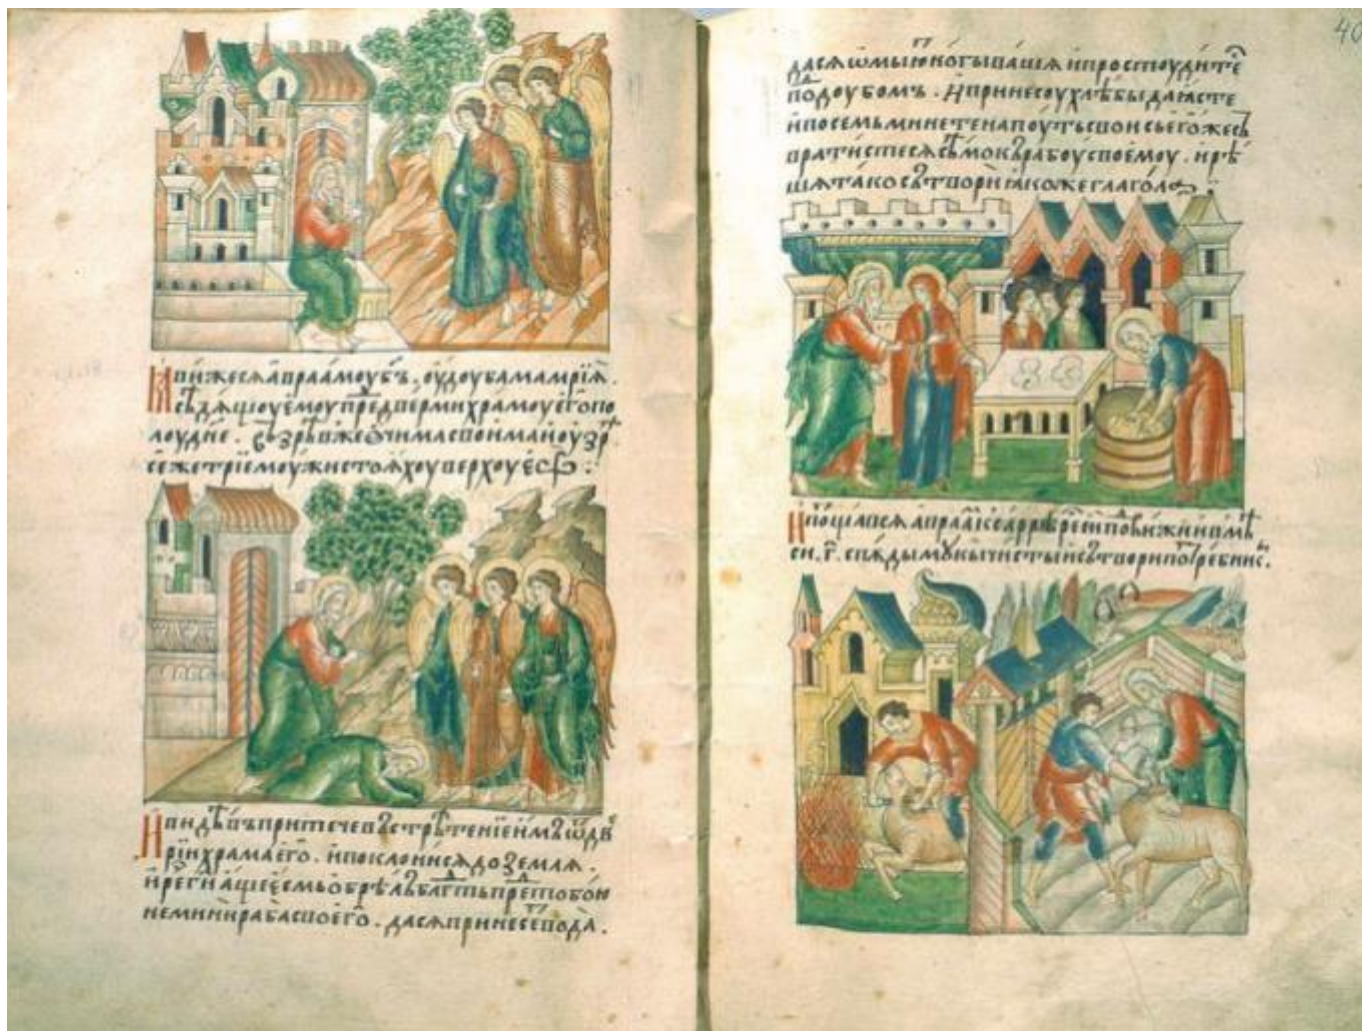 Ꙗвижесѧ авраамоу бъ, оу доуба мамрїѧ.
сѣдѧщоу емоу предвермихрамоу его по
лоудне. възрѣв же очима своима и оузр
се же трїе моужи стоꙗхоу верхоу его:
И видѣвъ притече въ стрѣтенїе им ѿ дв
рїи храма его. и поклонисѧ до землѧ.
и рег҃и аще есмь обрѣлъ блгть прⷣ тобою
не мини раба своего. да сѧ принесе пода.
40
да сѧ омыю ногы вашѧ и простоудите
под доубомъ. И принесоу хлѣбы да ꙗсте
и посемь минете на поуть свои сего же
вратистесѧ сѣмо къ рабоу своемоу. и рѣ
шѧ тако сътвори ꙗкоже глагола:
И потщавсѧ авраа к сарре рече еи подвижи и вмѣ
си. г҃. спѫды мукы чисты и сътвори потребник.